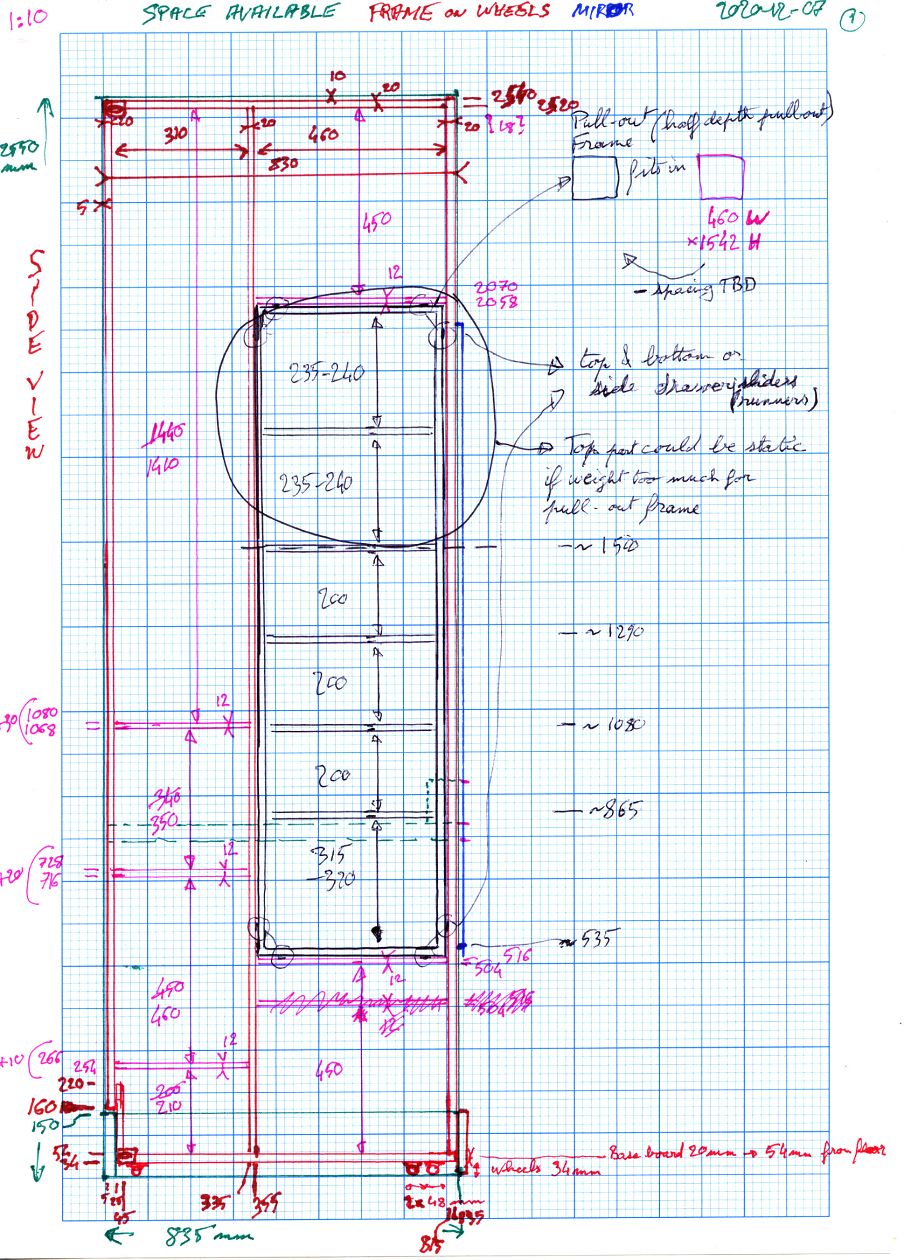 1:10
SPACE AVAILABLE FRAME ON WHEELS MIRROR
2020-12-07
1
10
20
2520
20
310
20
460
20
[18]
830
2550
mm
5
SIDE VIEW
Pull-out (half depth pullout)
Frame
fits in
460 W
×1542 H
- spacing TBD
450
12
2070
2058
235-240
top & bottom or
side drawer sliders
(runners)
1440
1410
235-240
Top part could be static
if weight too much for
pull-out frame
~ 1500
200
~ 1290
200
12
1080
1068
~ 1080
200
340
350
~865
12
+20 (728
716
315
-320
~ 535
504 516
12
450
460
12
12
+10 (266
254
450
220
200
210
160
150
54
34
Base board 20mm → 54mm from floor
wheels 34mm
45
335
355
2x48 mm
835 mm
815